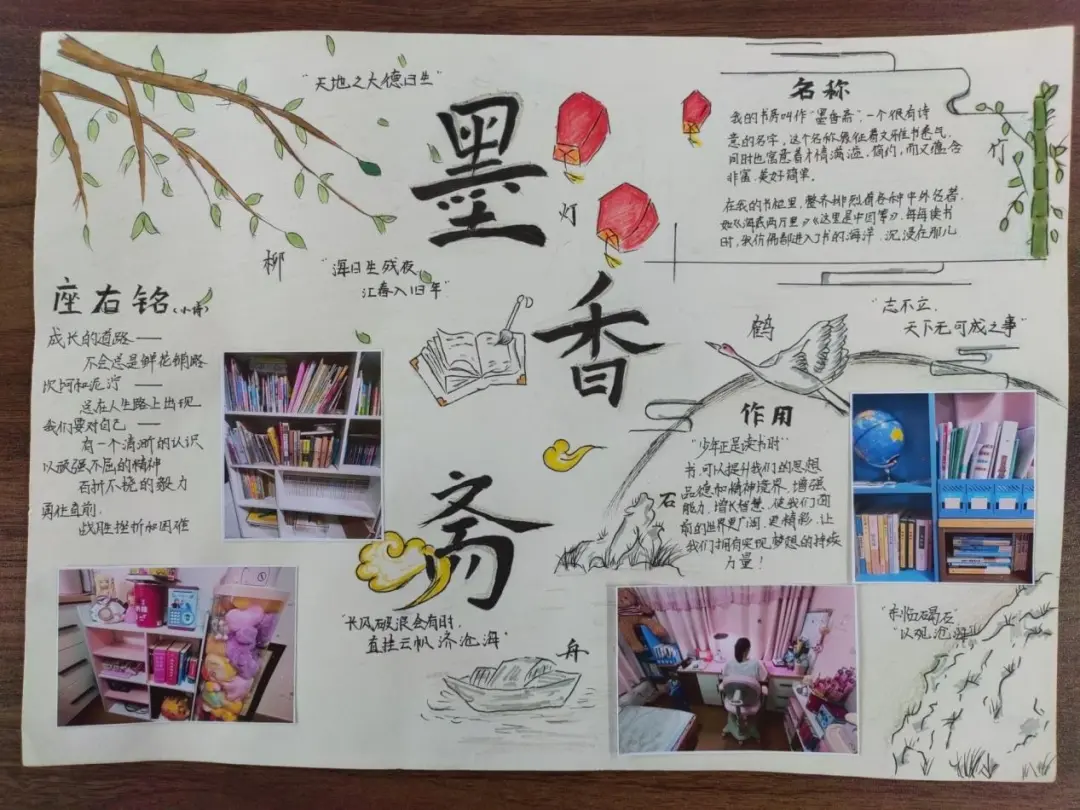 "天地之大德曰生"
墨
香
斋
灯
柳
"海日生残夜,
江春入旧年"
座右铭(小诗)
成长的道路——
不会总是鲜花铺路
坎坷和泥泞——
总在人生路上出现
我们要对自己——
有一个清晰的认识
以顽强不屈的精神
百折不挠的毅力
勇往直前,
战胜挫折和困难
名称
我的书房叫作"墨香斋",一个很有诗
意的名字,这个名称象征着文雅书卷气,
同时也寓意着才情满溢,简约,而又蕴含
丰富、美好简单。
在我的书柜里,整齐排列着各种中外名著,
如《海底两万里》《这里是中国等》,每每读书
时,我仿佛都进入了书的海洋,沉浸在那儿
竹
"志不立,
天下无可成之事"
鹤
作用
"少年正是读书时"
书,可以提升我们的思想
品德和精神境界,增强
能力,增长智慧,使我们面
前的世界更广阔,更精彩,让
我们拥有实现梦想的持续
力量!
石
"长风破浪会有时,
直挂云帆济沧海"
舟
"东临碣石"
"以观沧海"